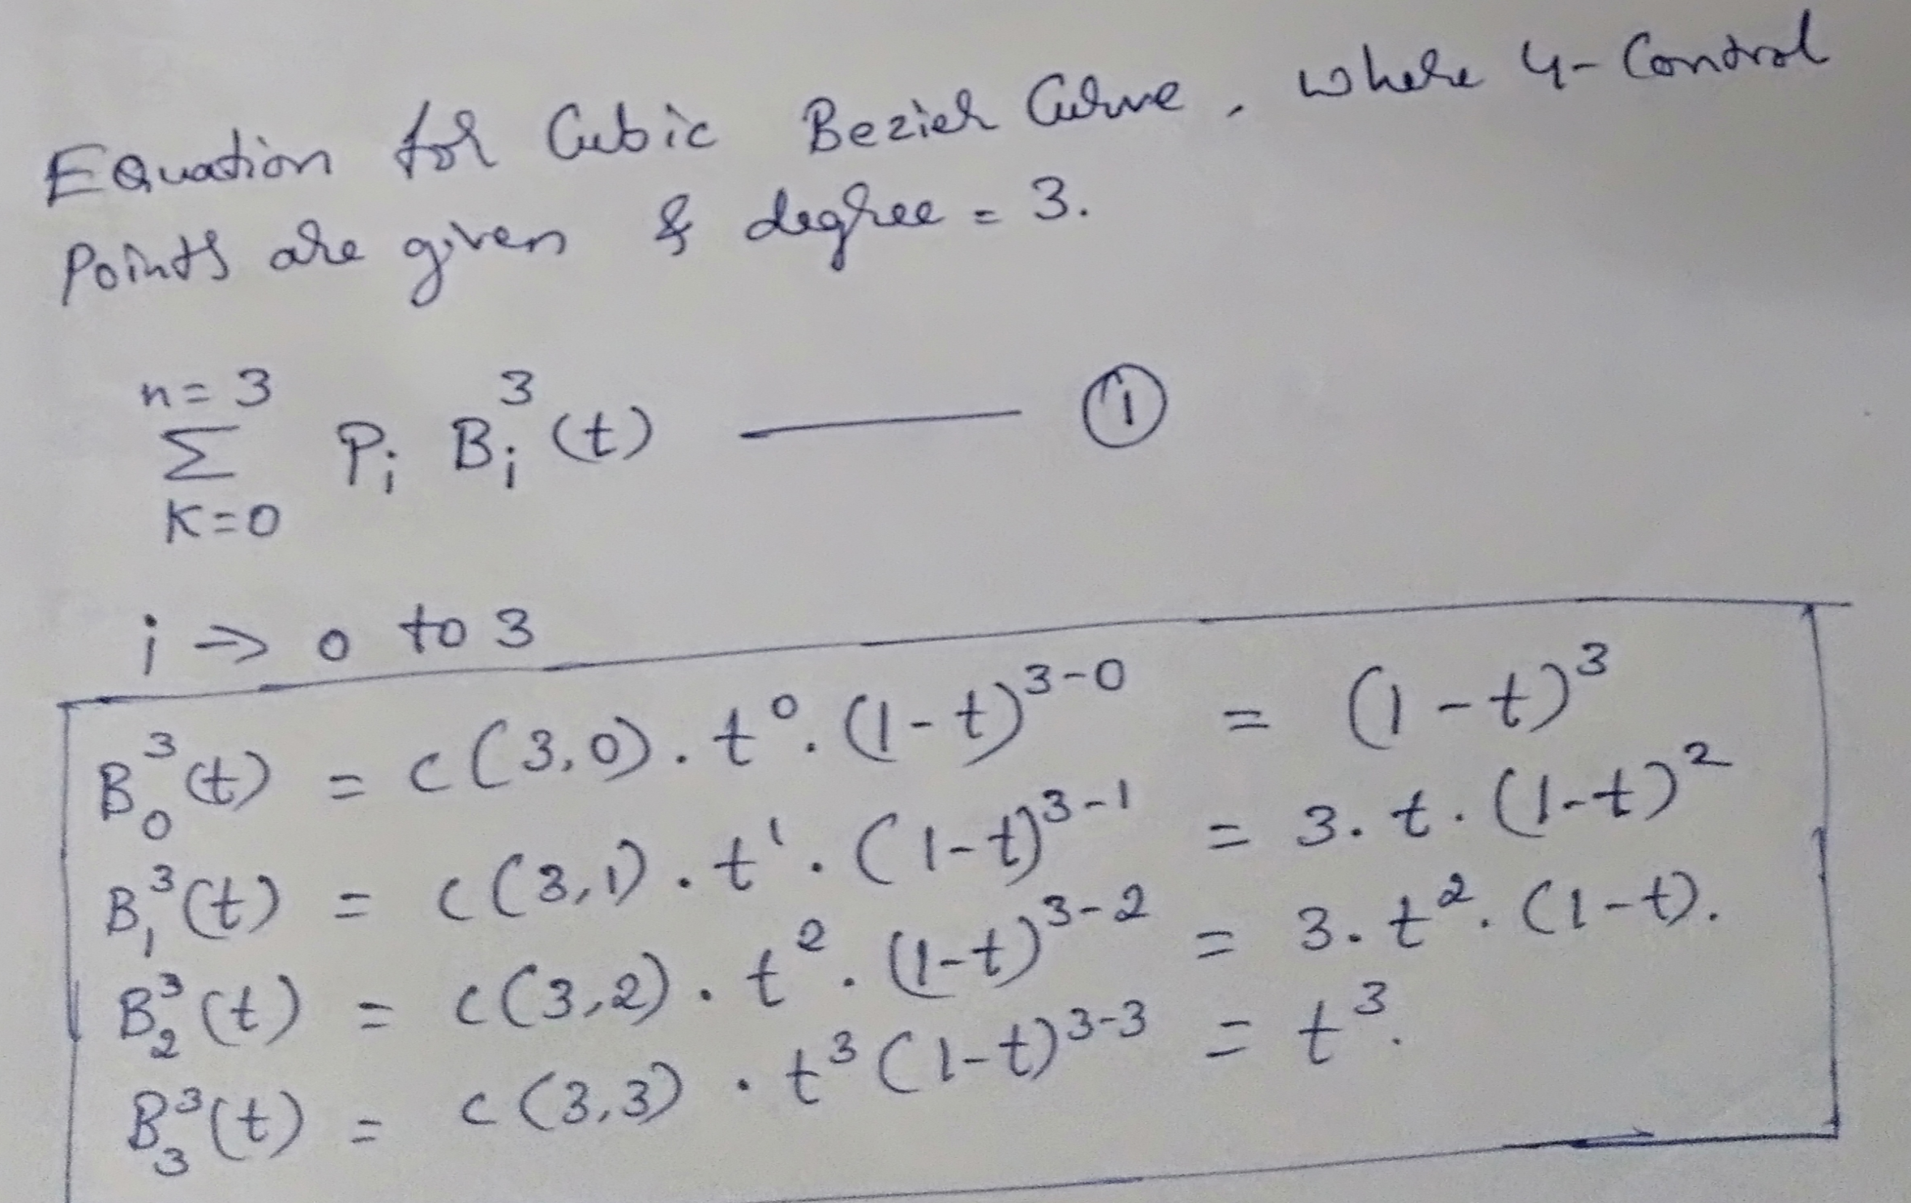 Equation for Cubic Bezier Curve, where 4-Control
Points are given & degree = 3.
n=3
Σ P_i B_i^3 (t) ——— ①
K=0
i => 0 to 3
B_0^3(t) = c(3,0).t^0.(1-t)^{3-0} = (1-t)^3
B_1^3(t) = c(3,1).t^1.(1-t)^{3-1} = 3.t.(1-t)^2
B_2^3(t) = c(3,2).t^2.(1-t)^{3-2} = 3.t^2.(1-t).
B_3^3(t) = c(3,3).t^3(1-t)^{3-3} = t^3.